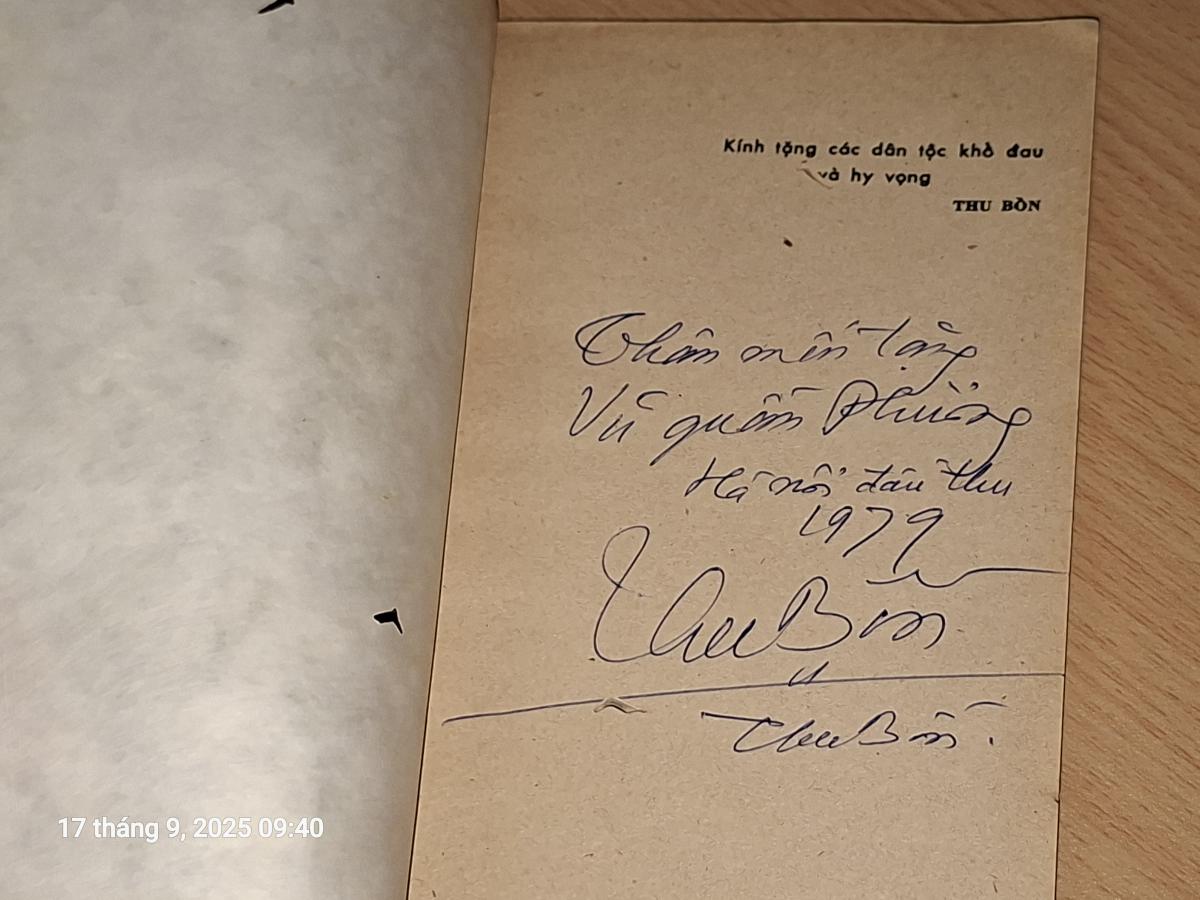 Kính tặng các dân tộc khổ đau
và hy vọng
THU BỒN
Thân mến tặng
Vũ quần Phương
Hà nội đầu thu
1979
Thu Bồn
Thu Bồn.
17 tháng 9, 2025 09:40